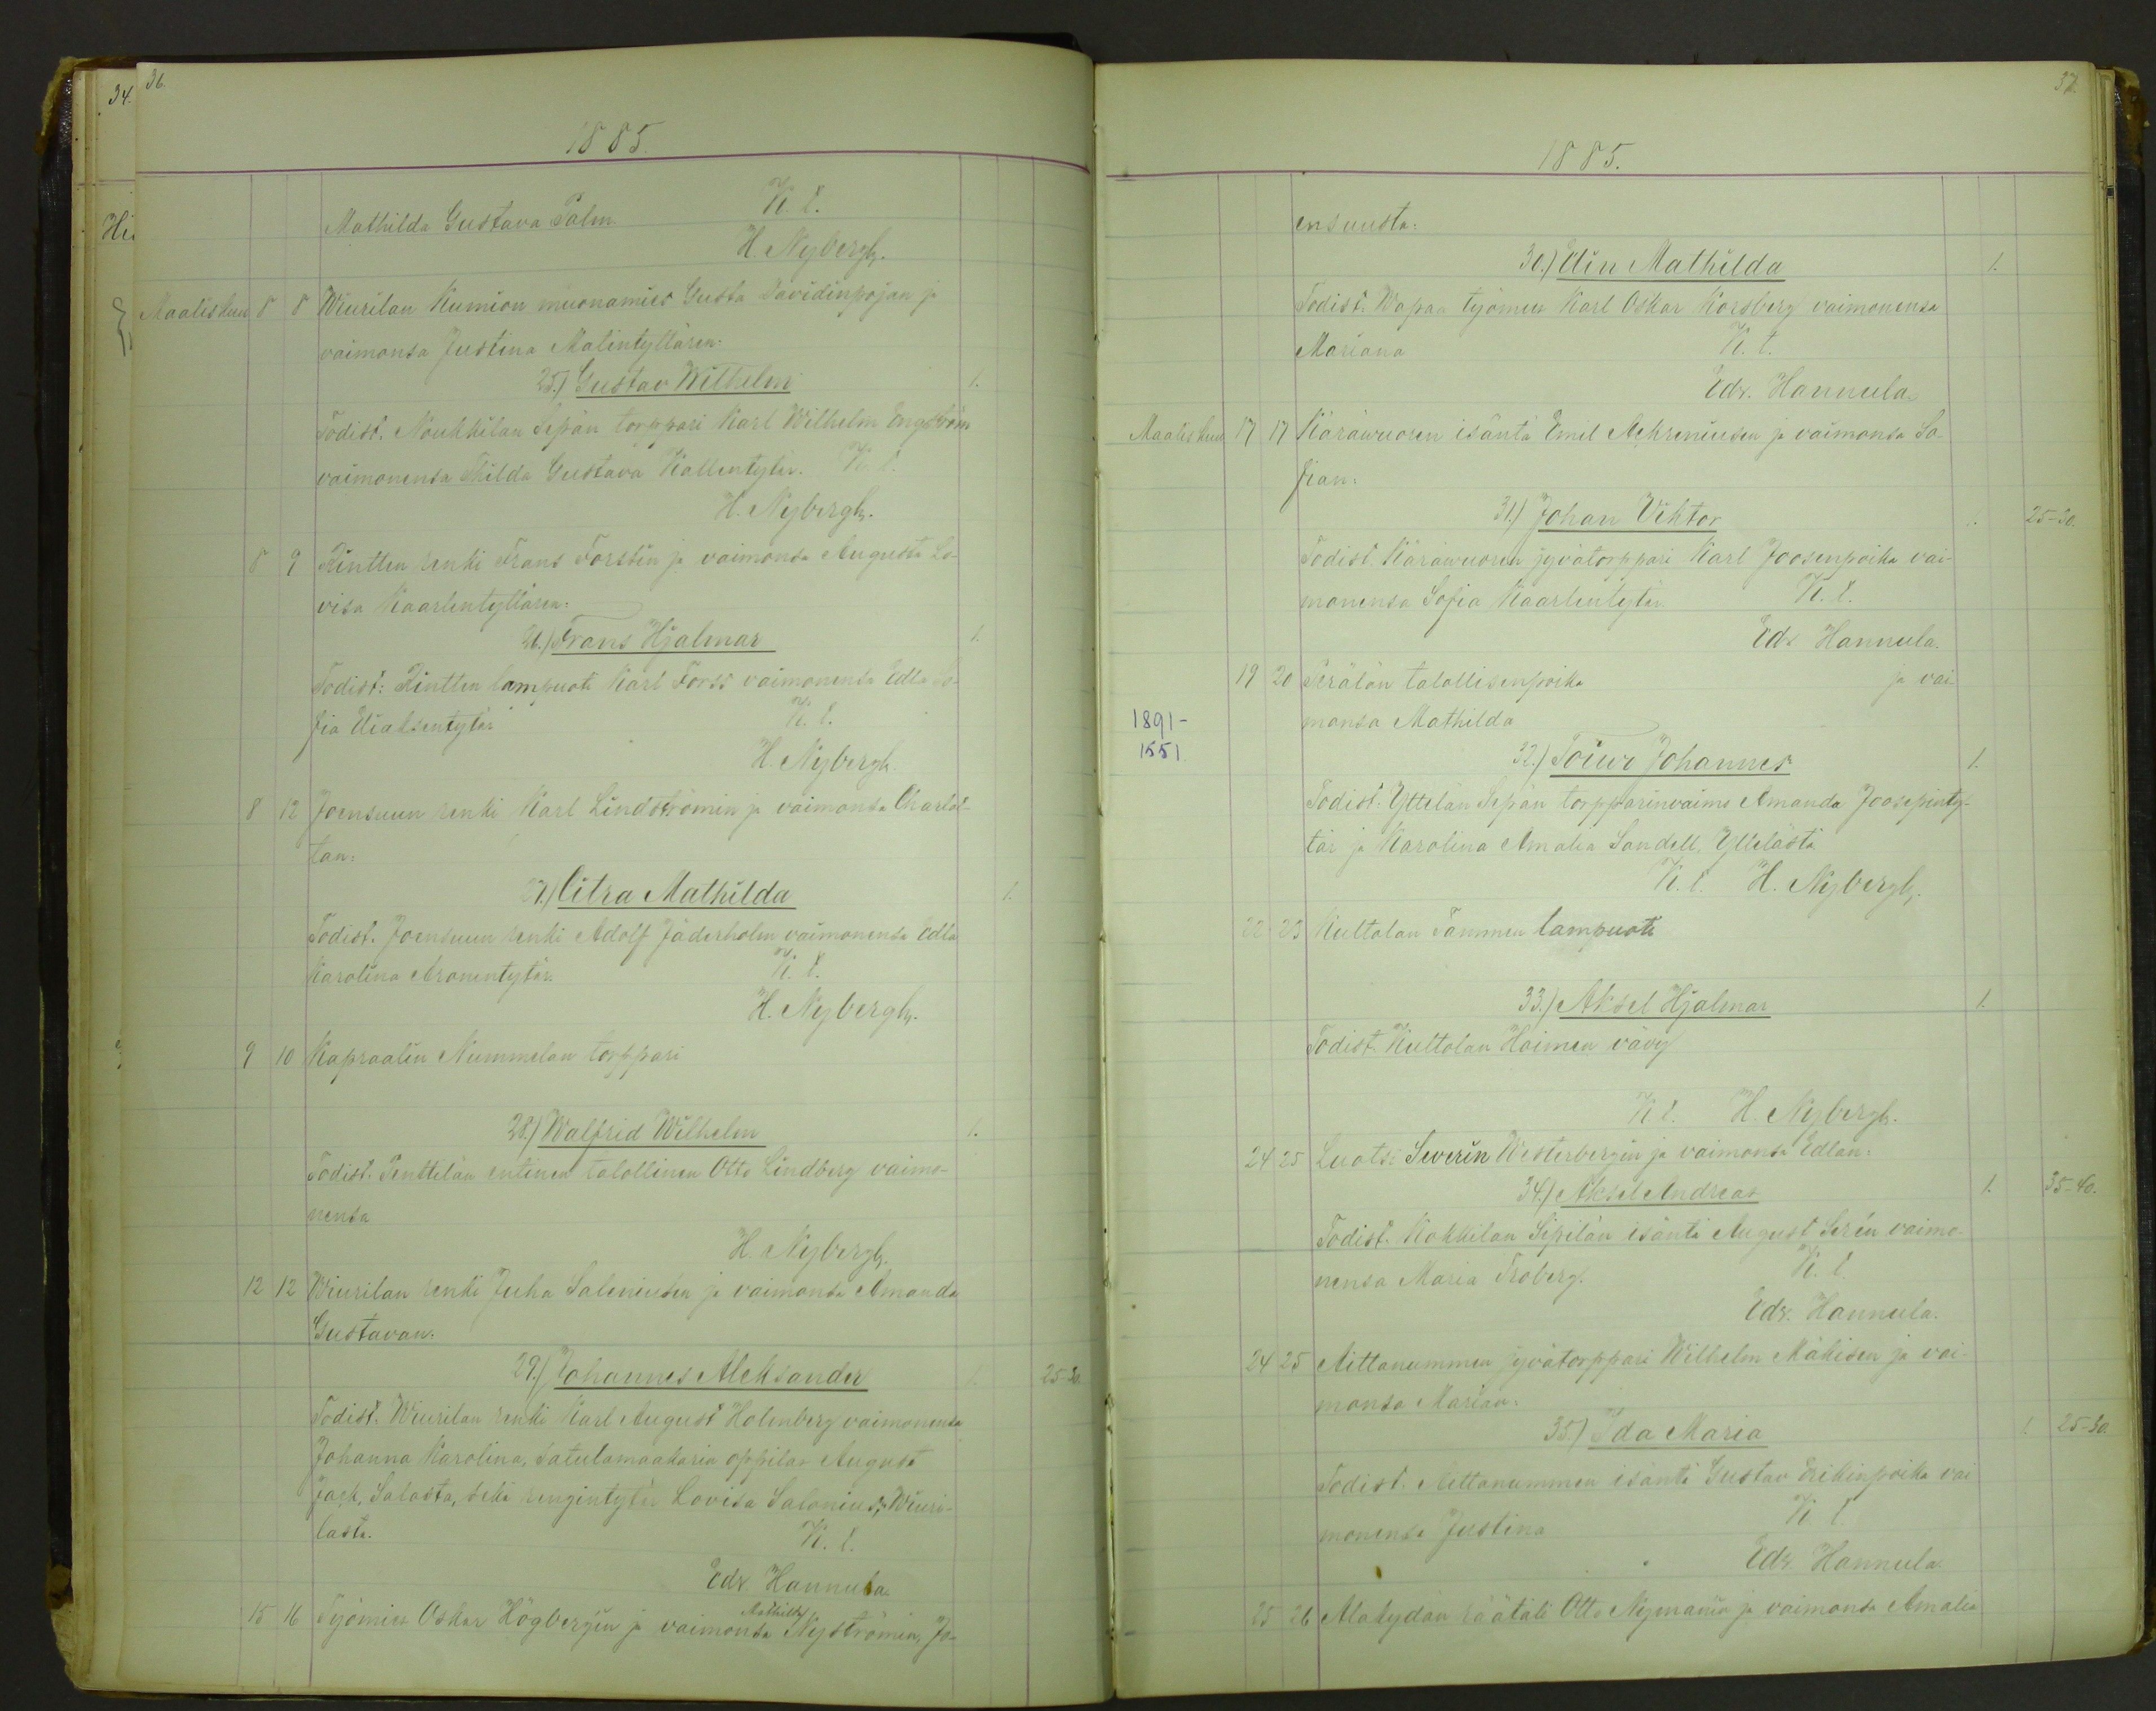 34.
36.
1885.
Mathilda Gustava Palm K. t.
H. Nybergh.
Maaliskuu 8 8 Wiurilan Kumion muonamies Gusta Davidinpojan ja
vaimonsa Justina Matintyttären.
25.) Gustav Wilhelm 1.
Todist. Noukkilan Sepän torppari Karl Wilhelm Engström
vaimonensa Thilda Gustava Kallentytär. K. t.
H. Nybergh.
8 9 Rintten renki Frans Forstin ja vaimonsa Augusta Lo-
visa Kaarlentyttären:
26.) Frans Hjalmar 1.
Todist: Rintten lampuoti Karl Forss vaimonensa Edla So-
fia Eliaksentytär K. t.
H. Nybergh.
8 12 Joensuun renki Karl Lindströmin ja vaimonsa Charlot-
tan:
27.) Citra Mathilda 1.
Todist. Joensuun renki Adolf Jäderholm vaimonensa Edla
Karolina Aronentytär. K. t.
H. Nybergh.
9 10 Kapraalin Nummelan torppari
28.) Walfrid Wilhelm 1.
Todist. Penttilän entinen talollinen Otto Lindberg vaimo-
nensa
H. Nybergh.
12 12 Wiurilan renki Juha Saleniuksen ja vaimonsa Amanda
Gustavan.
29.) Johannes Aleksander 1. 25-30
Todist. Wiurilan renki Karl August Holmberg vaimonensa
Johanna Karolina, satulamaakarin oppilas August
Jack, Salosta, sekä rengintytär Lovisa Salonius, Wiuri-
lasta. K. t.
Edv. Hannula
15 16 Työmies Oskar Högbergin ja vaimonsa Mathilda Nyströmin, Jo-
37.
1885.
ensuusta:
30.) Elin Mathilda 1.
Todist. Wapaa työmies Karl Oskar Korsberg vaimonensa
Mariana K. t.
Edv. Hannula
Maaliskuu 17 17 Käräwuoren isäntä Emil Aehreniusen ja vaimonsa So-
fian:
31.) Johan Viktor 25-30.
Todist. Käräwuoren jyvätorppari Karl Joosenpoika vai-
monensa Sofia Kaarlentytär K. t.
Edv Hannula.
19 20 Perälän talollisenpoika ja vai
1891-
1551
monsa Mathilda
32.) Toiwo Johannes 1.
Todist. Yttelän Sepän torpparinvaimo Amanda Joosepinty-
tär ja Karolina Amalia Sandell, Yttelästä
K. t. H. Nybergh.
22 23 Kultolan Tammen lampuoti
33.) Aksel Hjalmar 1.
Todist. Kultolan Haimen vävy
K. t. H. Nybergh.
24 25 Luotsi Severin Westerbergin ja vaimonsa Edlan:
34.) Aksel Andreas 1. 35-40.
Todist. Kokkilan Sipilän isäntä August Serén vaimo-
nensa Maria Froberg. K. t.
Edv. Hannula.
24 25 Aittanummen jyvätorppari Wilhelm Mäkisen ja vai-
monsa Marian:
35.) Ida Maria 1. 25-30.
Todist. Aittanummen isäntä Gustav Erikinpoika vai
monensa Justina K. t.
Edv Hannula
25 26 Alakydan räätäli Otto Nymanin ja vaimonsa Amalia